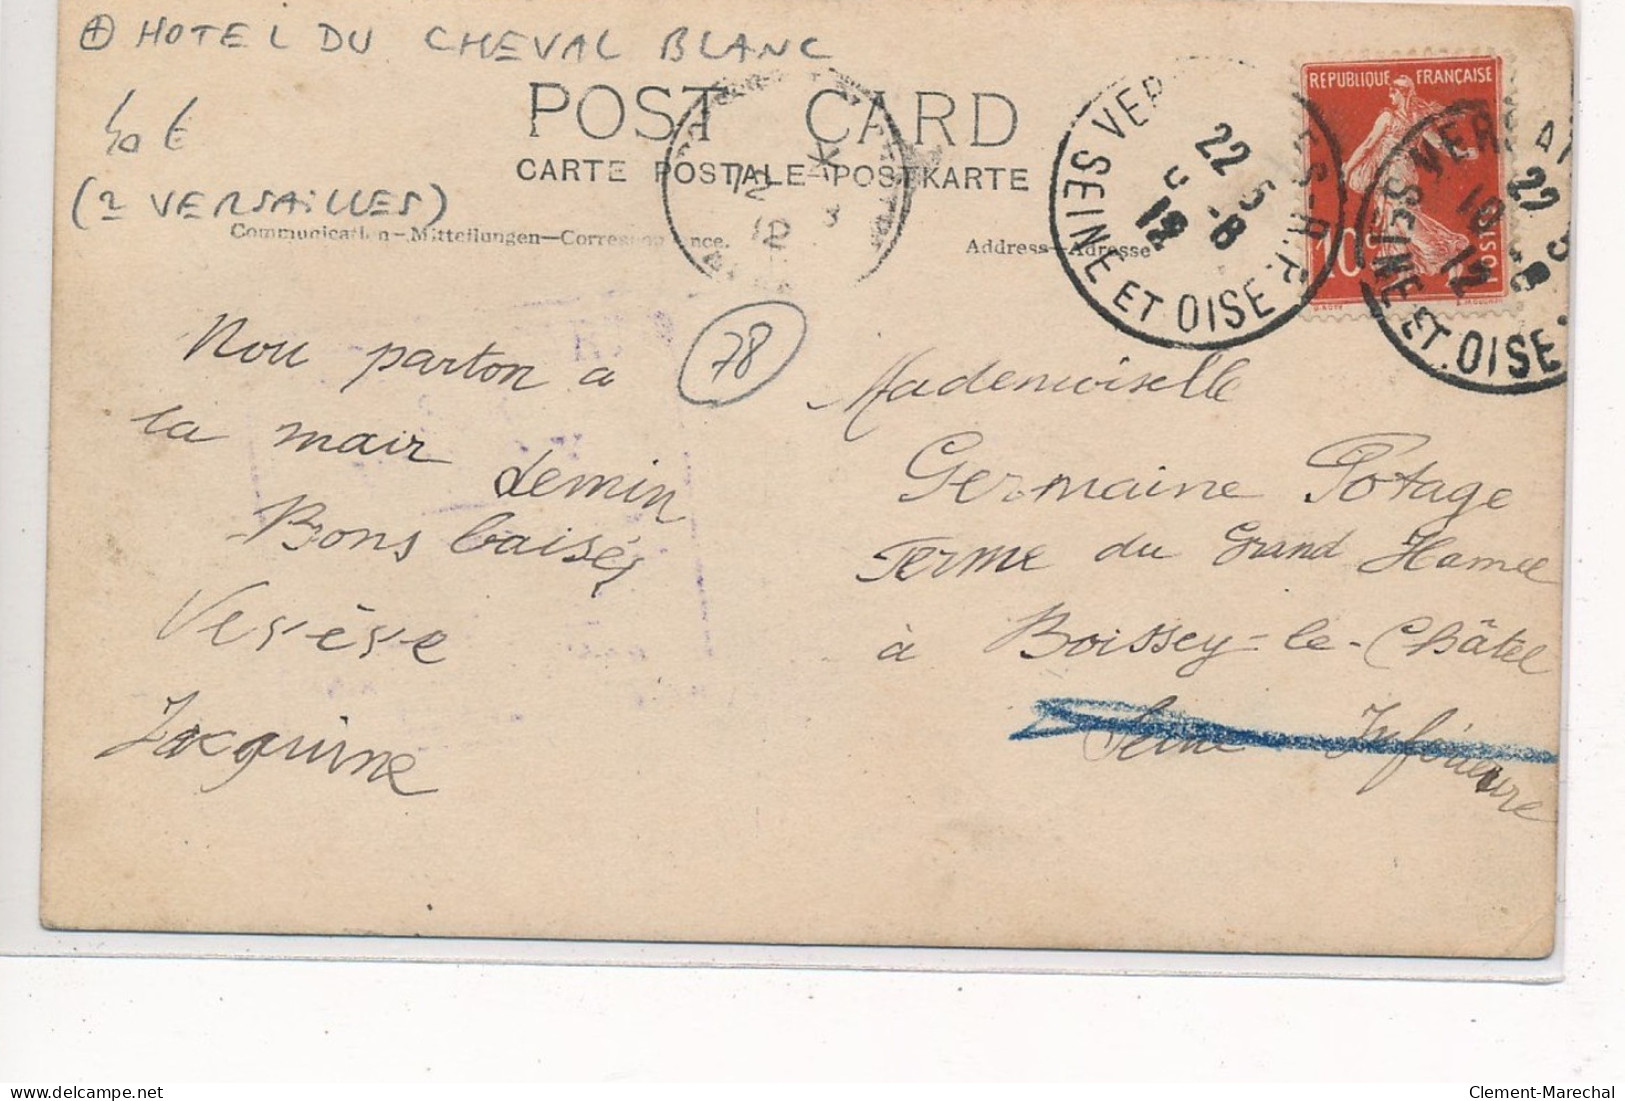 ⊕ HOTEL DU CHEVAL BLANC
40 €
(2 VERSAILLES)
POST CARD
CARTE POSTALE-POSTKARTE
Communication—Mitteilungen—Correspondance.
Address—Adresse
REPUBLIQUE FRANÇAISE
10c
POSTES
VERSAILLES-R.P.
22-5
8
12
SEINE ET OISE
VERSAILLES
22 5
10
12
SEINE ET OISE
12
12
78
Nou parton a
la mair demin
Bons baisés
Vesèse
Jacquine
Mademoiselle
Germaine Potage
Ferme du Grand Hamel
à Boissey-le-Châtel
Seine Inférieure
Clement-Marechal